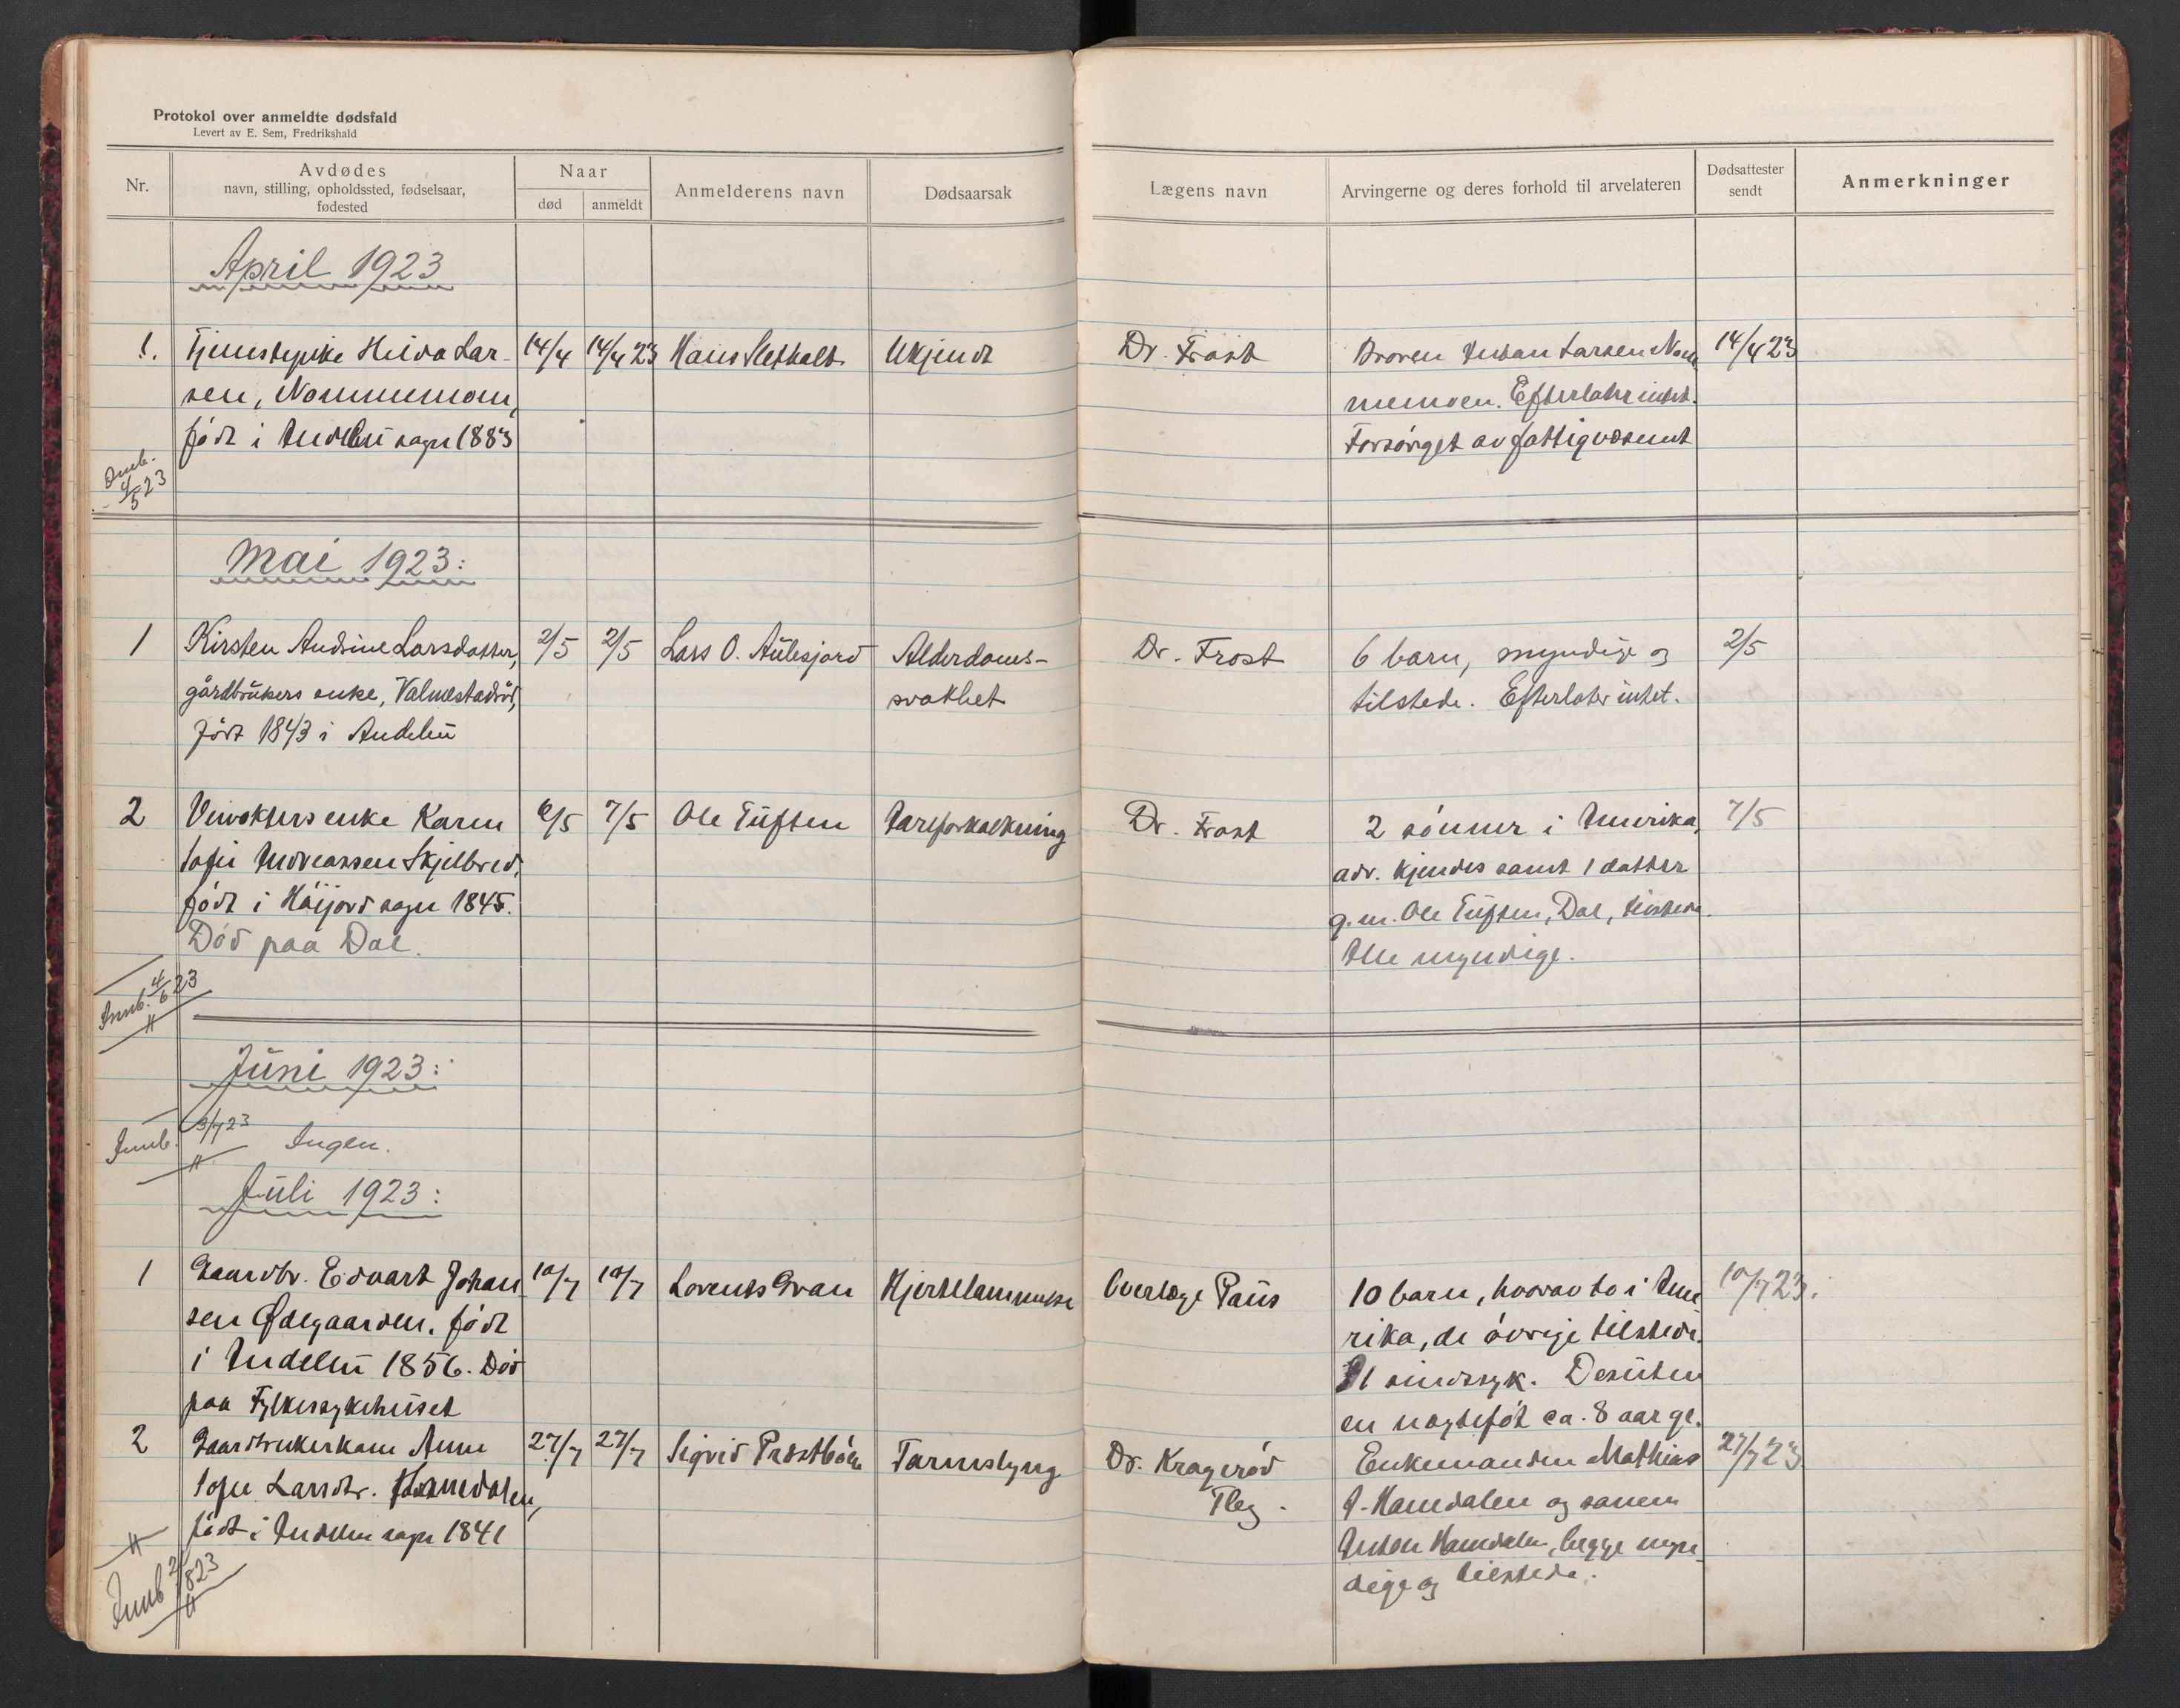 Protokol over anmeldte dødsfald
Levert av E. Sem, Fredrikshald
Nr.
Avdødes
navn, stilling, opholdssted, fødselsaar,
fødested
Naar
død
anmeldt
Anmelderens navn
Dødsaarsak
Lægens navn
Arvingerne og deres forhold til arvelateren
Dødsattester
sendt
Anmerkninger
April 1923
1. Tjenestepike Hilda Lar- 14/4 14/4 23 Hans Ukjendt Dr. Frost Broren Johan Larsen Nom 14/4 23
sen, Nommemoen, memoen. Efterlater intet.
født i Andebu sogn 1883 Forsørget av fattigvæsenet
Innb.
4/5 23
Mai 1923:
1 Kirsten Andrine Larsdatter, 2/5 2/5 Lars O. Aulesjord Alderdoms- Dr. Frost 6 barn, myndige og 2/5
gårdbrukers enke, svakhet tilstede. Efterlater intet.
født 1843 i Andebu
2 enke Karen 6/5 7/5 Ole Tuften Aareforkalkning Dr. Frost 2 sønner i Amerika, 7/5
Sofie Andreassen Skjelbred, adr. kjendes samt 1 datter
født i Høijord sogn 1845. g.m. Ole Tuften, Dal, tilstede.
Død paa Dal. Alle myndige.
Innb. 4/6 23
H
Juni 1923:
Innb. 3/7 23 Ingen.
H
Juli 1923:
1 Gaardbr. Edvart Johan 10/7 10/7 Lorents Gran Hjertelammelse Overlæge Paus 10 barn, hvorav to i Ame 10/7 23.
sen Ødegaarden, født rika, de øvrige tilstede.
i Andebu 1856. Død 1 sindssyk. Desuten
paa Fylkessykehuset en ca. 8 aar gl.
2 Gaardbrukerkone Anne 27/7 27/7 Sigvid Præstbøen Tarmslyng Dr. Kragerød Enkemanden Mathias 27/7 23
Sofie Larsdtr. Hamedalen, Tbg. A. Hamdalen og sønnen
født i Andebu sogn 1841 Anton Hamdalen, begge myn-
dige og tilstede.
H
Innb 2/8 23
H